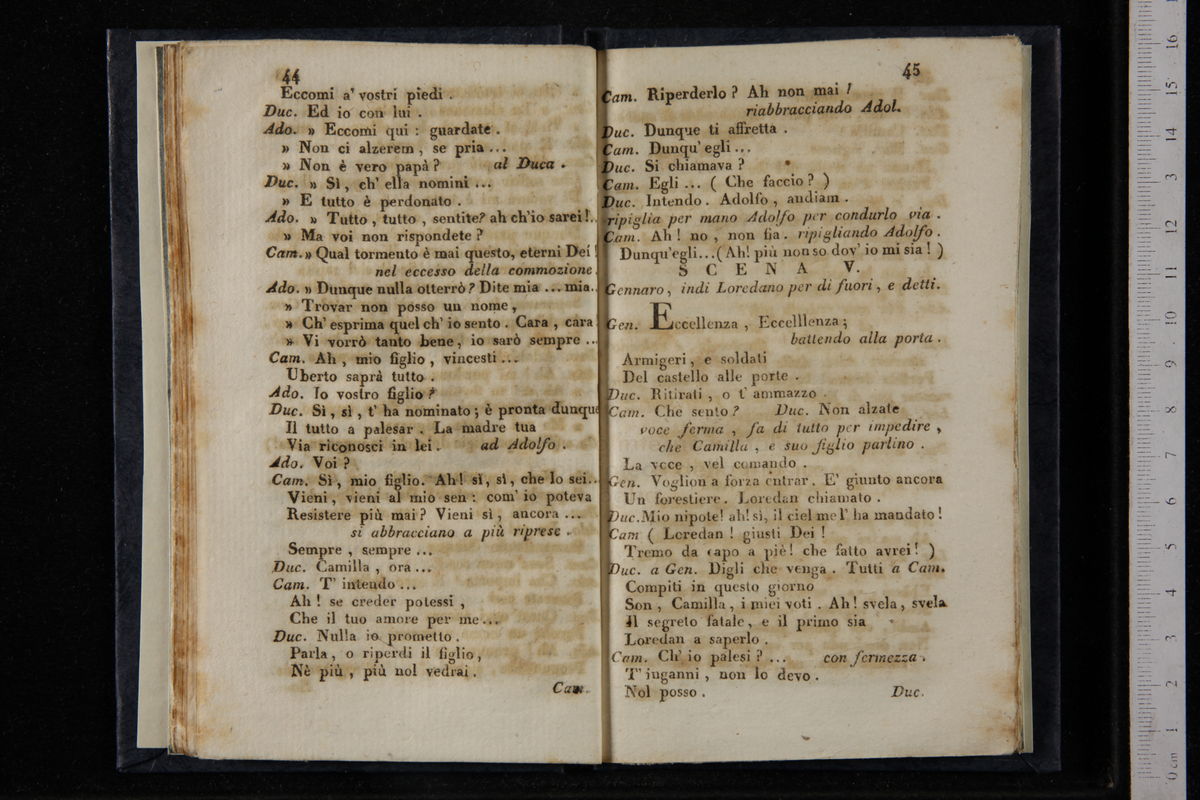 44
Eccomi a' vostri piedi .
Duc. Ed io con lui .
Ado. » Eccomi qui : guardate .
» Non ci alzerem , se pria ...
» Non è vero papà ? al Duca .
Duc. » Sì , ch' ella nomini ...
» E tutto è perdonato .
Ado. » Tutto , tutto , sentite? ah ch'io sarei !..
» Ma voi non rispondete ?
Cam. » Qual tormento è mai questo, eterni Dei !
nel eccesso della commozione.
Ado. » Dunque nulla otterrò ? Dite mia ... mia..
» Trovar non posso un nome ,
» Ch' esprima quel ch' io sento . Cara , cara
» Vi vorrò tanto bene , io sarò sempre ...
Cam. Ah , mio figlio , vincesti ...
Uberto saprà tutto .
Ado. Io vostro figlio ?
Duc. Sì , sì , t' ha nominato ; è pronta dunque
Il tutto a palesar . La madre tua
Via riconosci in lei . ad Adolfo .
Ado. Voi ?
Cam. Sì , mio figlio. Ah ! sì, sì , che lo sei..
Vieni , vieni al mio sen : com' io poteva
Resistere più mai ? Vieni sì , ancora ...
si abbracciano a più riprese .
Sempre , sempre ...
Duc. Camilla , ora ...
Cam. T' intendo ...
Ah ! se creder potessi ,
Che il tuo amore per me ...
Duc. Nulla io prometto .
Parla , o riperdi il figlio ,
Nè più , più nol vedrai .
Cam.
45
Cam. Riperderlo ? Ah non mai !
riabbracciando Adol.
Duc. Dunque ti affretta .
Cam. Dunqu' egli ...
Duc. Si chiamava ?
Cam. Egli ... ( Che faccio ? )
Duc. Intendo . Adolfo , andiam .
ripiglia per mano Adolfo per condurlo via .
Cam. Ah ! no , non fia . ripigliando Adolfo .
Dunqu'egli...( Ah! più non so dov' io mi sia ! )
S C E N A V.
Gennaro , indi Loredano per di fuori , e detti.
Gen. Eccellenza , Eccelllenza ;
battendo alla porta .
Armigeri , e soldati
Del castello alle porte .
Duc. Ritirati , o t' ammazzo .
Cam. Che sento ? Duc. Non alzate
voce ferma , fa di tutto per impedire ,
che Camilla , e suo figlio parlino .
La voce , vel comando .
Gen. Voglion a forza entrar . E' giunto ancora
Un forestiere . Loredan chiamato .
Duc. Mio nipote! ah! sì, il ciel me l' ha mandato !
Cam ( Loredan ! giusti Dei !
Tremo da capo a piè ! che fatto avrei ! )
Duc. a Gen. Digli che venga . Tutti a Cam.
Compiti in questo giorno
Son , Camilla , i miei voti . Ah ! svela , svela
Il segreto fatale , e il primo sia
Loredan a saperlo .
Cam. Ch' io palesi ? ... con fermezza .
T' inganni , non lo devo .
Nol posso .
Duc.
0 cm 1 2 3 4 5 6 7 8 9 10 11 12 13 14 15 16